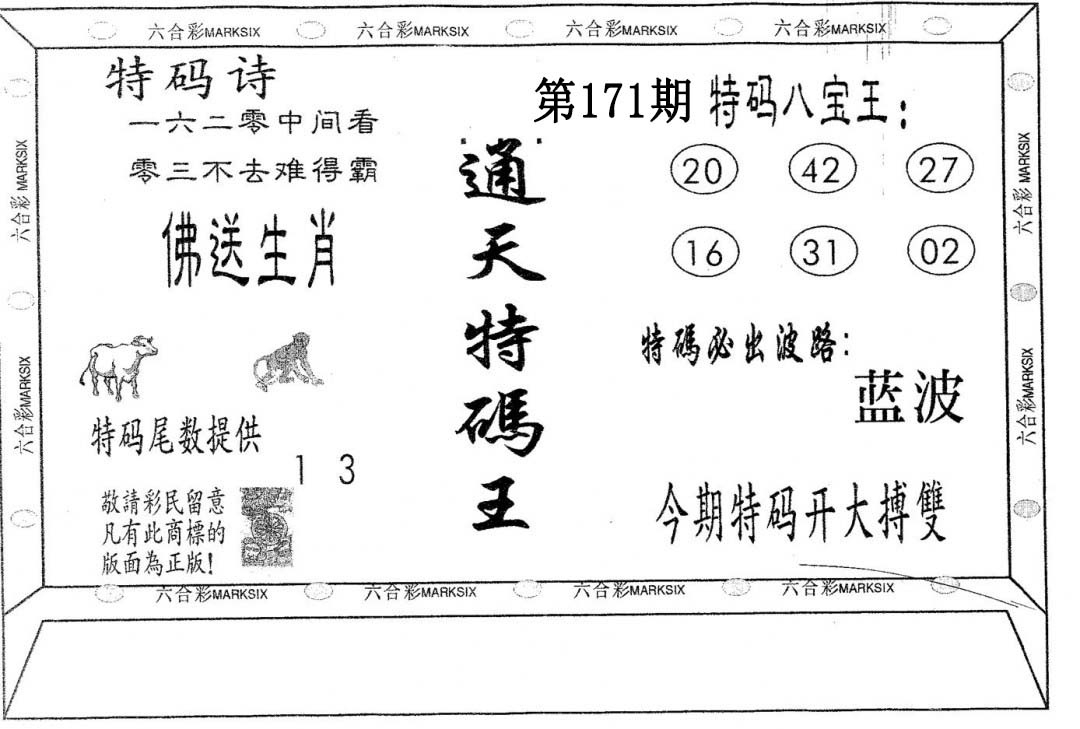 六合彩MARKSIX 六合彩MARKSIX 六合彩MARKSIX 六合彩MARKSIX
特码诗
一六二零中间看
零三不去难得霸
佛送生肖
特码尾数提供
1 3
敬請彩民留意
凡有此商標的
版面為正版!
通天特碼王
第171期 特码八宝王:
20 42 27
16 31 02
特碼必出波路:
蓝波
今期特码开大搏雙
六合彩 MARKSIX
六合彩MARKSIX
六合彩 MARKSIX
六合彩MARKSIX
六合彩MARKSIX 六合彩MARKSIX 六合彩MARKSIX 六合彩MARKSIX